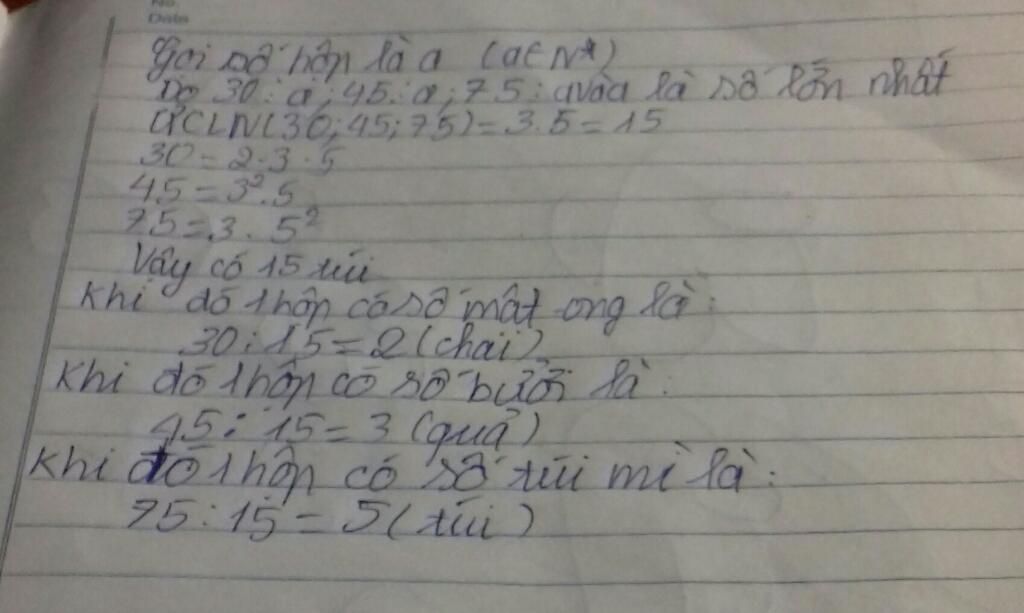 No.
Date
Gọi số hộp là a (a∈N*)
Do 30⋮a; 45⋮a; 75⋮a và a là số lớn nhất
ƯCLN(30;45;75)=3.5=15
30=2.3.5
45=3².5
75=3.5²
Vậy có 15 túi
Khi đó 1 hộp có số mật ong là:
30:15=2(chai)
Khi đó 1 hộp có số bưởi là:
45:15=3 (quả)
Khi đó 1 hộp có số túi mì là:
75:15=5(túi)